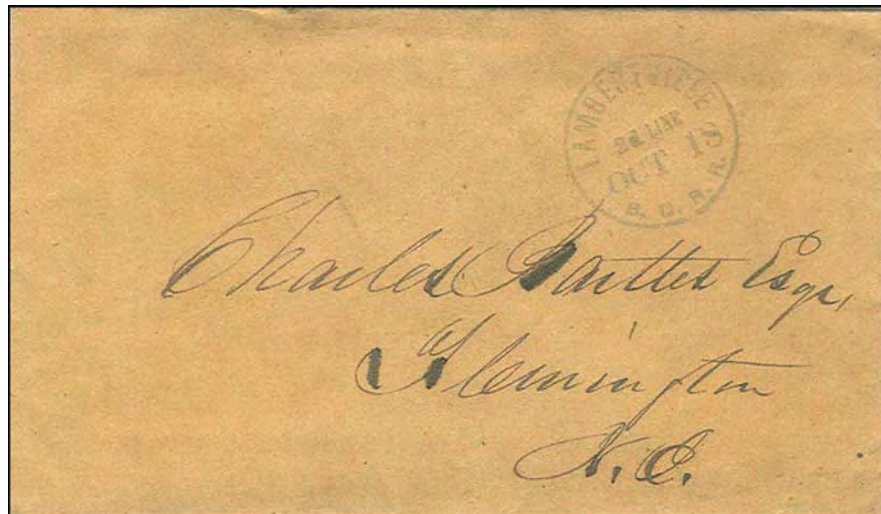 LAMBERTVILLE
2d LINE
OCT 13
B. D. R. R.
Charles Bartles Esqr,
Flemington
N. J.